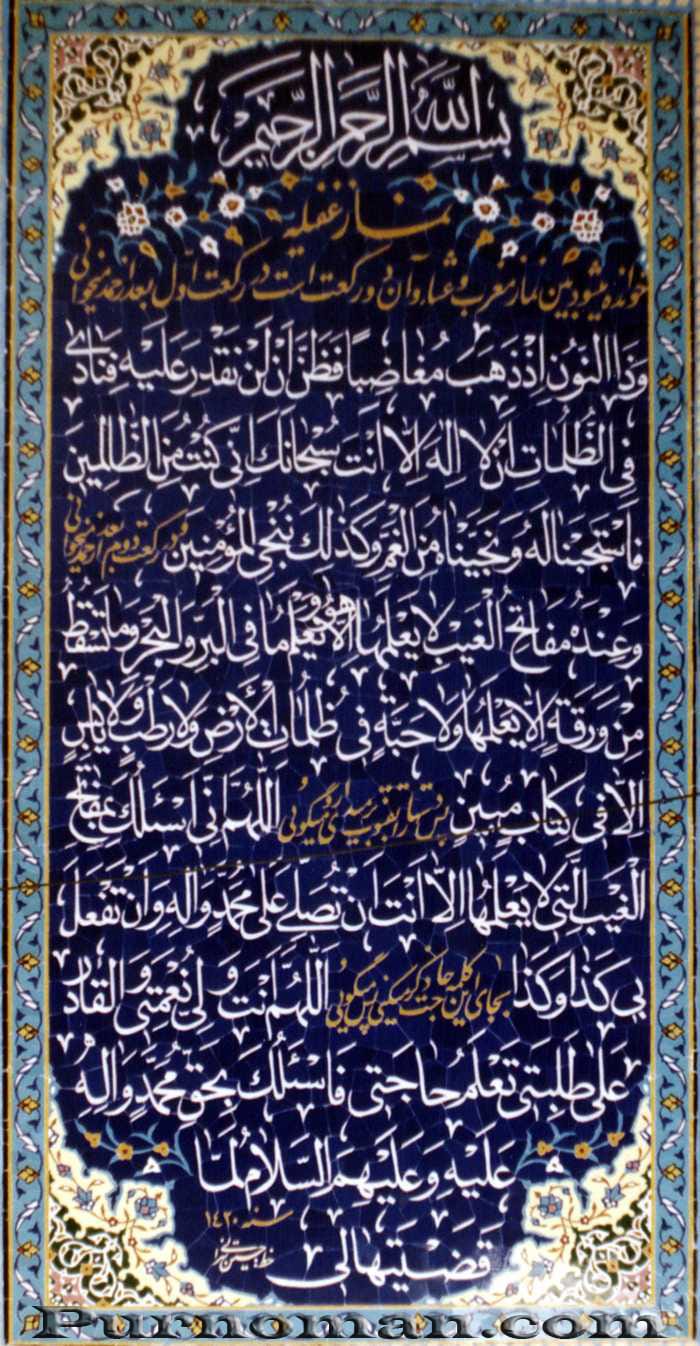 بسم الله الرحمن الرحیم
نماز غفیله
خوانده میشود بین نماز مغرب و عشاء و آن دو رکعت است در رکعت اول بعد از حمد میخوانی
وَذَا النُّونِ اِذْ ذَهَبَ مُغاضِباً فَظَنَّ اَنْ لَنْ نَقْدِرَ عَلَیْهِ فَنادی
فِی الظُّلُماتِ اَنْ لا اِلهَ اِلّا اَنْتَ سُبْحانَكَ اِنّی كُنْتُ مِنَ الظّالِمینَ
فَاسْتَجَبْنا لَهُ وَ نَجَّیْناهُ مِنَ الْغَمِّ وَ كَذلِكَ نُنْجِی الْمُؤْمِنینَ و در رکعت دوم بعد از حمد میخوانی
وَ عِنْدَهُ مَفاتِحُ الْغَیْبِ لا یَعْلَمُها اِلّا هُوَ وَ یَعْلَمُ ما فِی الْبَرِّ وَ الْبَحْرِ وَ ما تَسْقُطُ
مِنْ وَرَقَةٍ اِلّا یَعْلَمُها وَلا حَبَّةٍ فی ظُلُماتِ الْاَرْضِ وَلا رَطْبٍ وَلا یابِسٍ
اِلّا فی كِتابٍ مُبینٍ پس دستها را بقنوت برمیداری و میگوئی اَللّهُمَّ اِنّی اَسْئَلُكَ بِمَفاتِحِ
الْغَیْبِ الَّتی لا یَعْلَمُها اِلّا اَنْتَ اَنْ تُصَلِّیَ عَلی مُحَمَّدٍ وَ الِهِ وَ اَنْ تَفْعَلَ
بی كَذا وَ كَذا بجای این کلمه حاجت ذکر میکنی پس میگوئی اَللّهُمَّ اَنْتَ وَلِیُّ نِعْمَتی وَ الْقادِرُ
عَلی طَلِبَتی تَعْلَمُ حاجَتی فَاَسْئَلُكَ بِحَقِّ مُحَمَّدٍ وَ الِهِ
عَلَیْهِ وَ عَلَیْهِمُ السَّلامُ لَمّا
قَضَیْتَها لی
سنه ۱۴۲۰
Purnoman.com